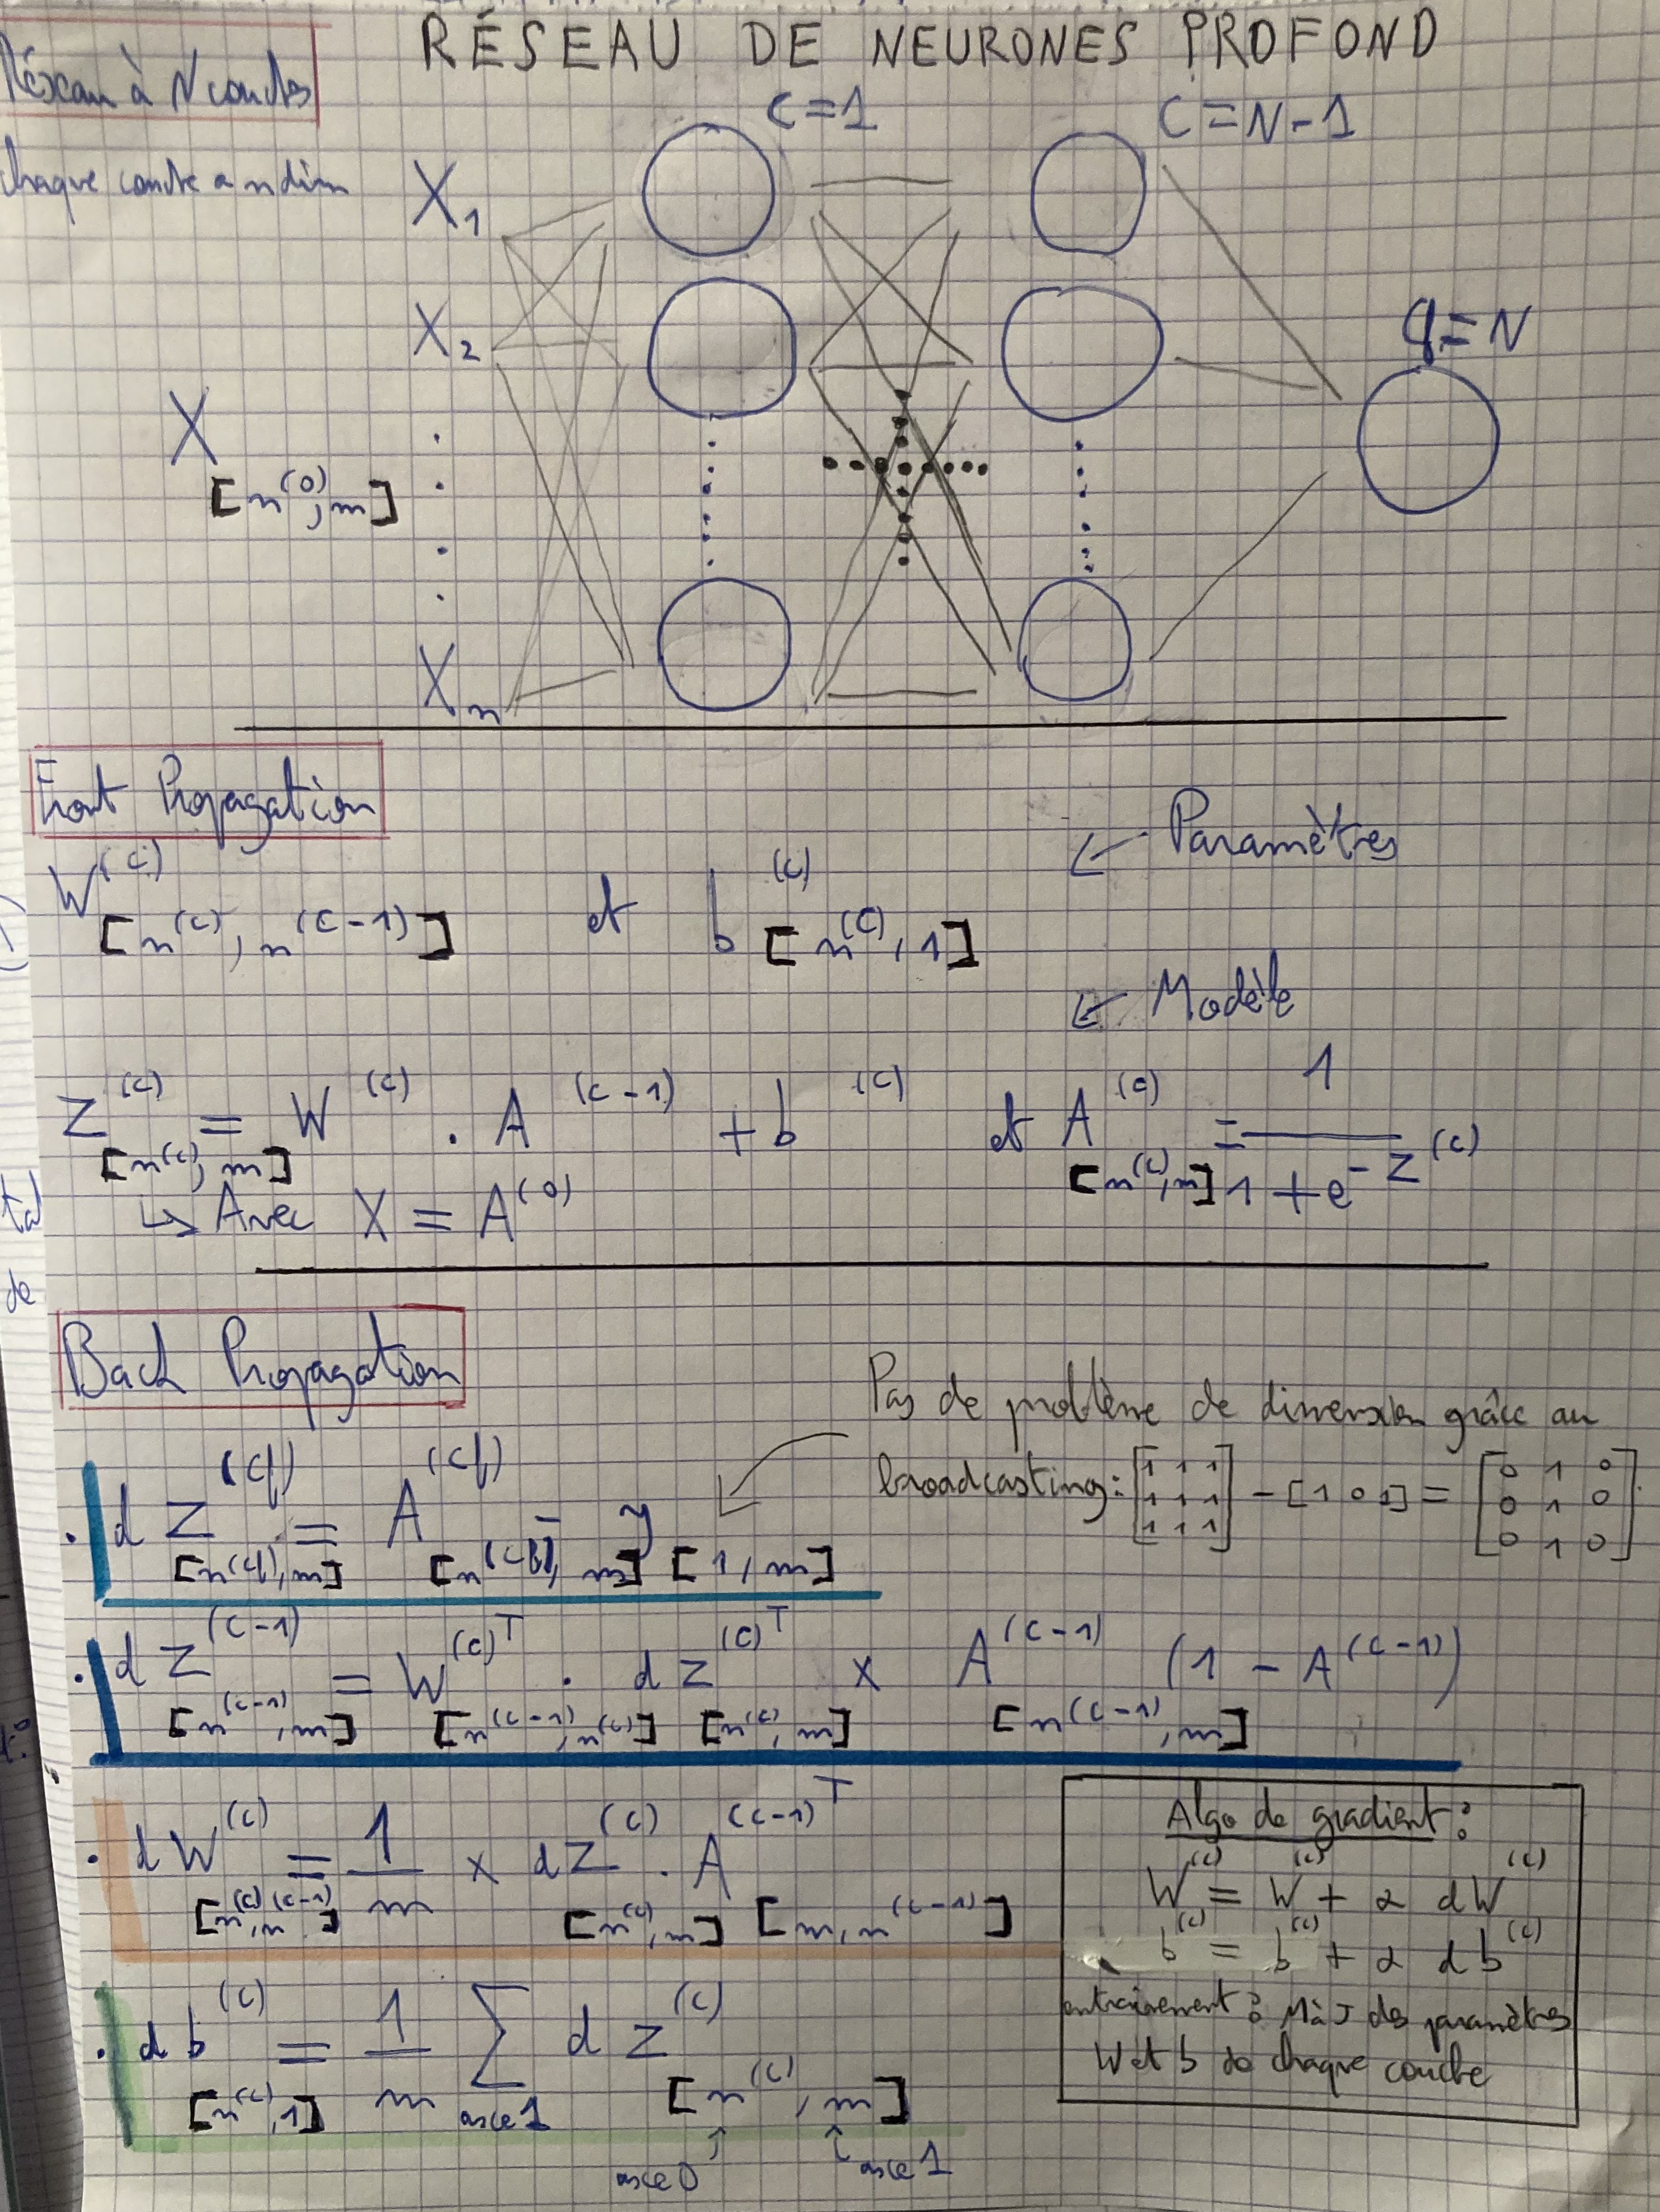 RÉSEAU DE NEURONES PROFOND
Réseau à N couches
chaque couche a n dim
C = 1
C = N - 1
Cf = N
X₁
X₂
X [n⁽⁰⁾, m]
Xₙ
Front Propagation
← Paramètres
W⁽ᶜ⁾ [n⁽ᶜ⁾, n⁽ᶜ⁻¹⁾] et b⁽ᶜ⁾ [n⁽ᶜ⁾, 1]
← Modèle
Z⁽ᶜ⁾ [n⁽ᶜ⁾, m] = W⁽ᶜ⁾ . A⁽ᶜ⁻¹⁾ + b⁽ᶜ⁾ et A⁽ᶜ⁾ [n⁽ᶜ⁾, m] = 1 / (1 + e^(-Z⁽ᶜ⁾))
↳ Avec X = A⁽⁰⁾
tal
de
Back Propagation
Pas de problème de dimension grâce au
broadcasting : [1 1 1; 1 1 1; 1 1 1] - [1 0 1] = [0 1 0; 0 1 0; 0 1 0]
. dZ⁽ᶜᶠ⁾ [n⁽ᶜᶠ⁾, m] = A⁽ᶜᶠ⁾ [n⁽ᶜᶠ⁾, m] - y [1, m]
. dZ⁽ᶜ⁻¹⁾ [n⁽ᶜ⁻¹⁾, m] = W⁽ᶜ⁾ᵀ [n⁽ᶜ⁻¹⁾, n⁽ᶜ⁾] . dZ⁽ᶜ⁾ᵀ [n⁽ᶜ⁾, m] × A⁽ᶜ⁻¹⁾ (1 - A⁽ᶜ⁻¹⁾) [n⁽ᶜ⁻¹⁾, m]
. dW⁽ᶜ⁾ [n⁽ᶜ⁾, n⁽ᶜ⁻¹⁾] = 1/m × dZ⁽ᶜ⁾ [n⁽ᶜ⁾, m] . A⁽ᶜ⁻¹⁾ᵀ [m, n⁽ᶜ⁻¹⁾]
. db⁽ᶜ⁾ [n⁽ᶜ⁾, 1] = 1/m Σ axe 1 dZ⁽ᶜ⁾ [n⁽ᶜ⁾, m]
axe 0 axe 1
Algo de gradient :
W⁽ᶜ⁾ = W⁽ᶜ⁾ + α dW⁽ᶜ⁾
b⁽ᶜ⁾ = b⁽ᶜ⁾ + α db⁽ᶜ⁾
entrainement : MàJ des paramètres
W et b de chaque couche